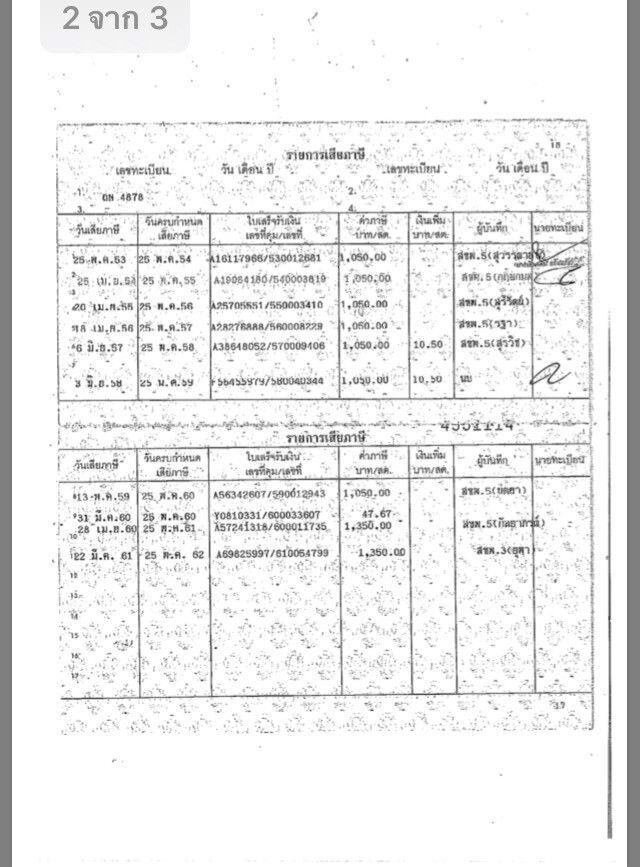 2 จาก 3
18
รายการเสียภาษี
เลขทะเบียน วัน เดือน ปี เลขทะเบียน วัน เดือน ปี
1. 2.
ฌห 4878
3. 4.
วันเสียภาษี วันครบกำหนดเสียภาษี ใบเสร็จรับเงินเล่มที่คุม/เลขที่ ค่าภาษีบาท/สต. เงินเพิ่มบาท/สต. ผู้บันทึก นายทะเบียน
25 พ.ค.53 25 พ.ค.54 A16117966/530012681 1,050.00 สขพ.5
25 พ.ค.55 1,050.00 สขพ.5
20 เม.ย.55 25 พ.ค.56 A25705551/550003410 1,050.00 สขพ.5(สุรีรัตน์)
18 เม.ย.56 25 พ.ค.57 A28276888/560008229 1,050.00 สขพ.5
6 มิ.ย.57 25 พ.ค.58 A38648052/570009406 1,050.00 10.50 สขพ.5
3 มิ.ย.58 56455979/580040344 1,050.00 10.50
4551114
รายการเสียภาษี
วันเสียภาษี วันครบกำหนดเสียภาษี ใบเสร็จรับเงินเล่มที่คุม/เลขที่ ค่าภาษีบาท/สต. เงินเพิ่มบาท/สต. ผู้บันทึก นายทะเบียน
13 พ.ค.59 25 พ.ค.60 A56342607/590012943 1,050.00 สขพ.5
31 มี.ค.60 25 พ.ค.60 Y0810331/600033607 47.67
28 เม.ย.60 25 พ.ค.61 A57241318/600011735 1,350.00 สขพ.5
10
22 มี.ค. 61 25 พ.ค. 62 A69825997/610054799 1,350.00 สขพ.3
12
13
14
15
16
17
17